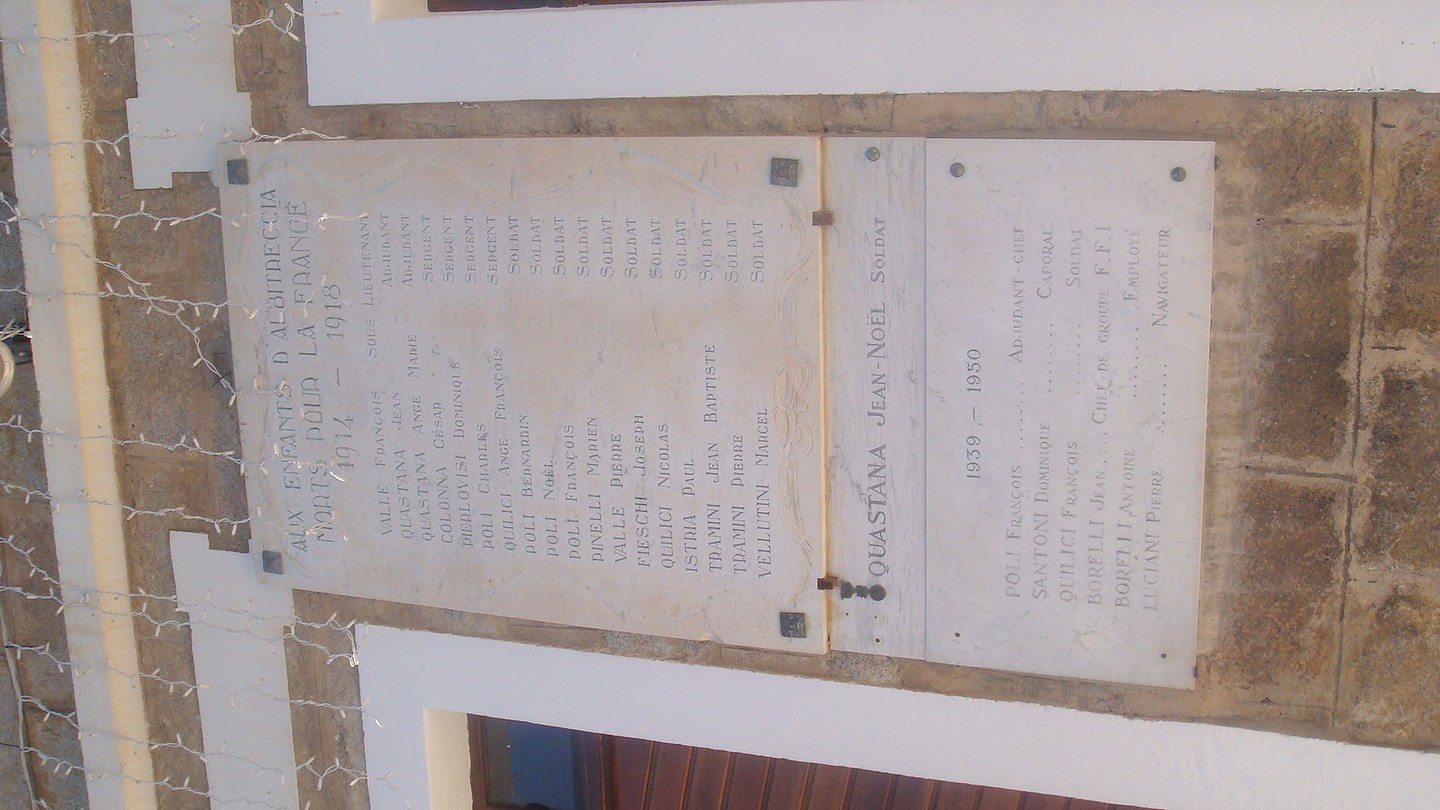 AUX ENFANTS D'ALBITRECCIA
MORTS POUR LA FRANCE
1914 – 1918
VALLE FRANÇOIS SOUS LIEUTENANT
QUASTANA JEAN ADJUDANT
QUASTANA ANGE MARIE ADJUDANT
COLONNA CÉSAR SERGENT
PIERLOVISI DOMINIQUE SERGENT
POLI CHARLES SERGENT
QUILICI ANGE FRANÇOIS SERGENT
POLI BERNARDIN SOLDAT
POLI NOËL SOLDAT
POLI FRANÇOIS SOLDAT
PINELLI MARIEN SOLDAT
VALLE PIERRE SOLDAT
FIESCHI JOSEPH SOLDAT
QUILICI NICOLAS SOLDAT
ISTRIA PAUL SOLDAT
TRAMINI JEAN BAPTISTE SOLDAT
TRAMINI PIERRE SOLDAT
VELLUTINI MARCEL SOLDAT
QUASTANA JEAN-NOËL SOLDAT
1939 – 1950
POLI FRANÇOIS ........ ADJUDANT-CHEF
SANTONI DOMINIQUE ........ CAPORAL
QUILICI FRANÇOIS ........ SOLDAT
BORELLI JEAN .... CHEF DE GROUPE F.F.I
BORELLI ANTOINE ........ EMPLOYÉ
LUCIANI PIERRE ........ NAVIGATEUR